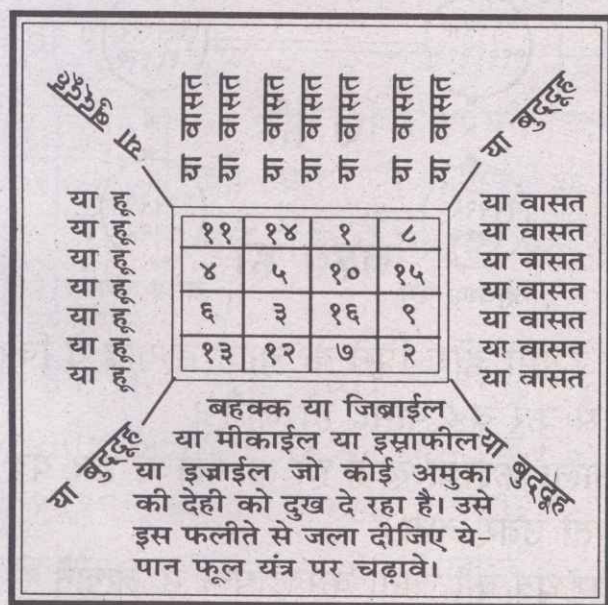 या बुद्दूह
या वासत
या वासत
या वासत
या वासत
या वासत
या वासत
या वासत
या बुद्दूह
या हूहू
या हूहू
या हूहू
या हूहू
या हूहू
या हूहू
या हूहू
११ १४ १ ८
४ ५ १० १५
६ ३ १६ ९
१३ १२ ७ २
या वासत
या वासत
या वासत
या वासत
या वासत
या वासत
या वासत
या बुद्दूह
या बुद्दूह
बहक्क या जिब्राईल
या मीकाईल या इस्राफील
या इज्राईल जो कोई अमुका
की देही को दुख दे रहा है। उसे
इस फलीते से जला दीजिए ये-
पान फूल यंत्र पर चढ़ावे।